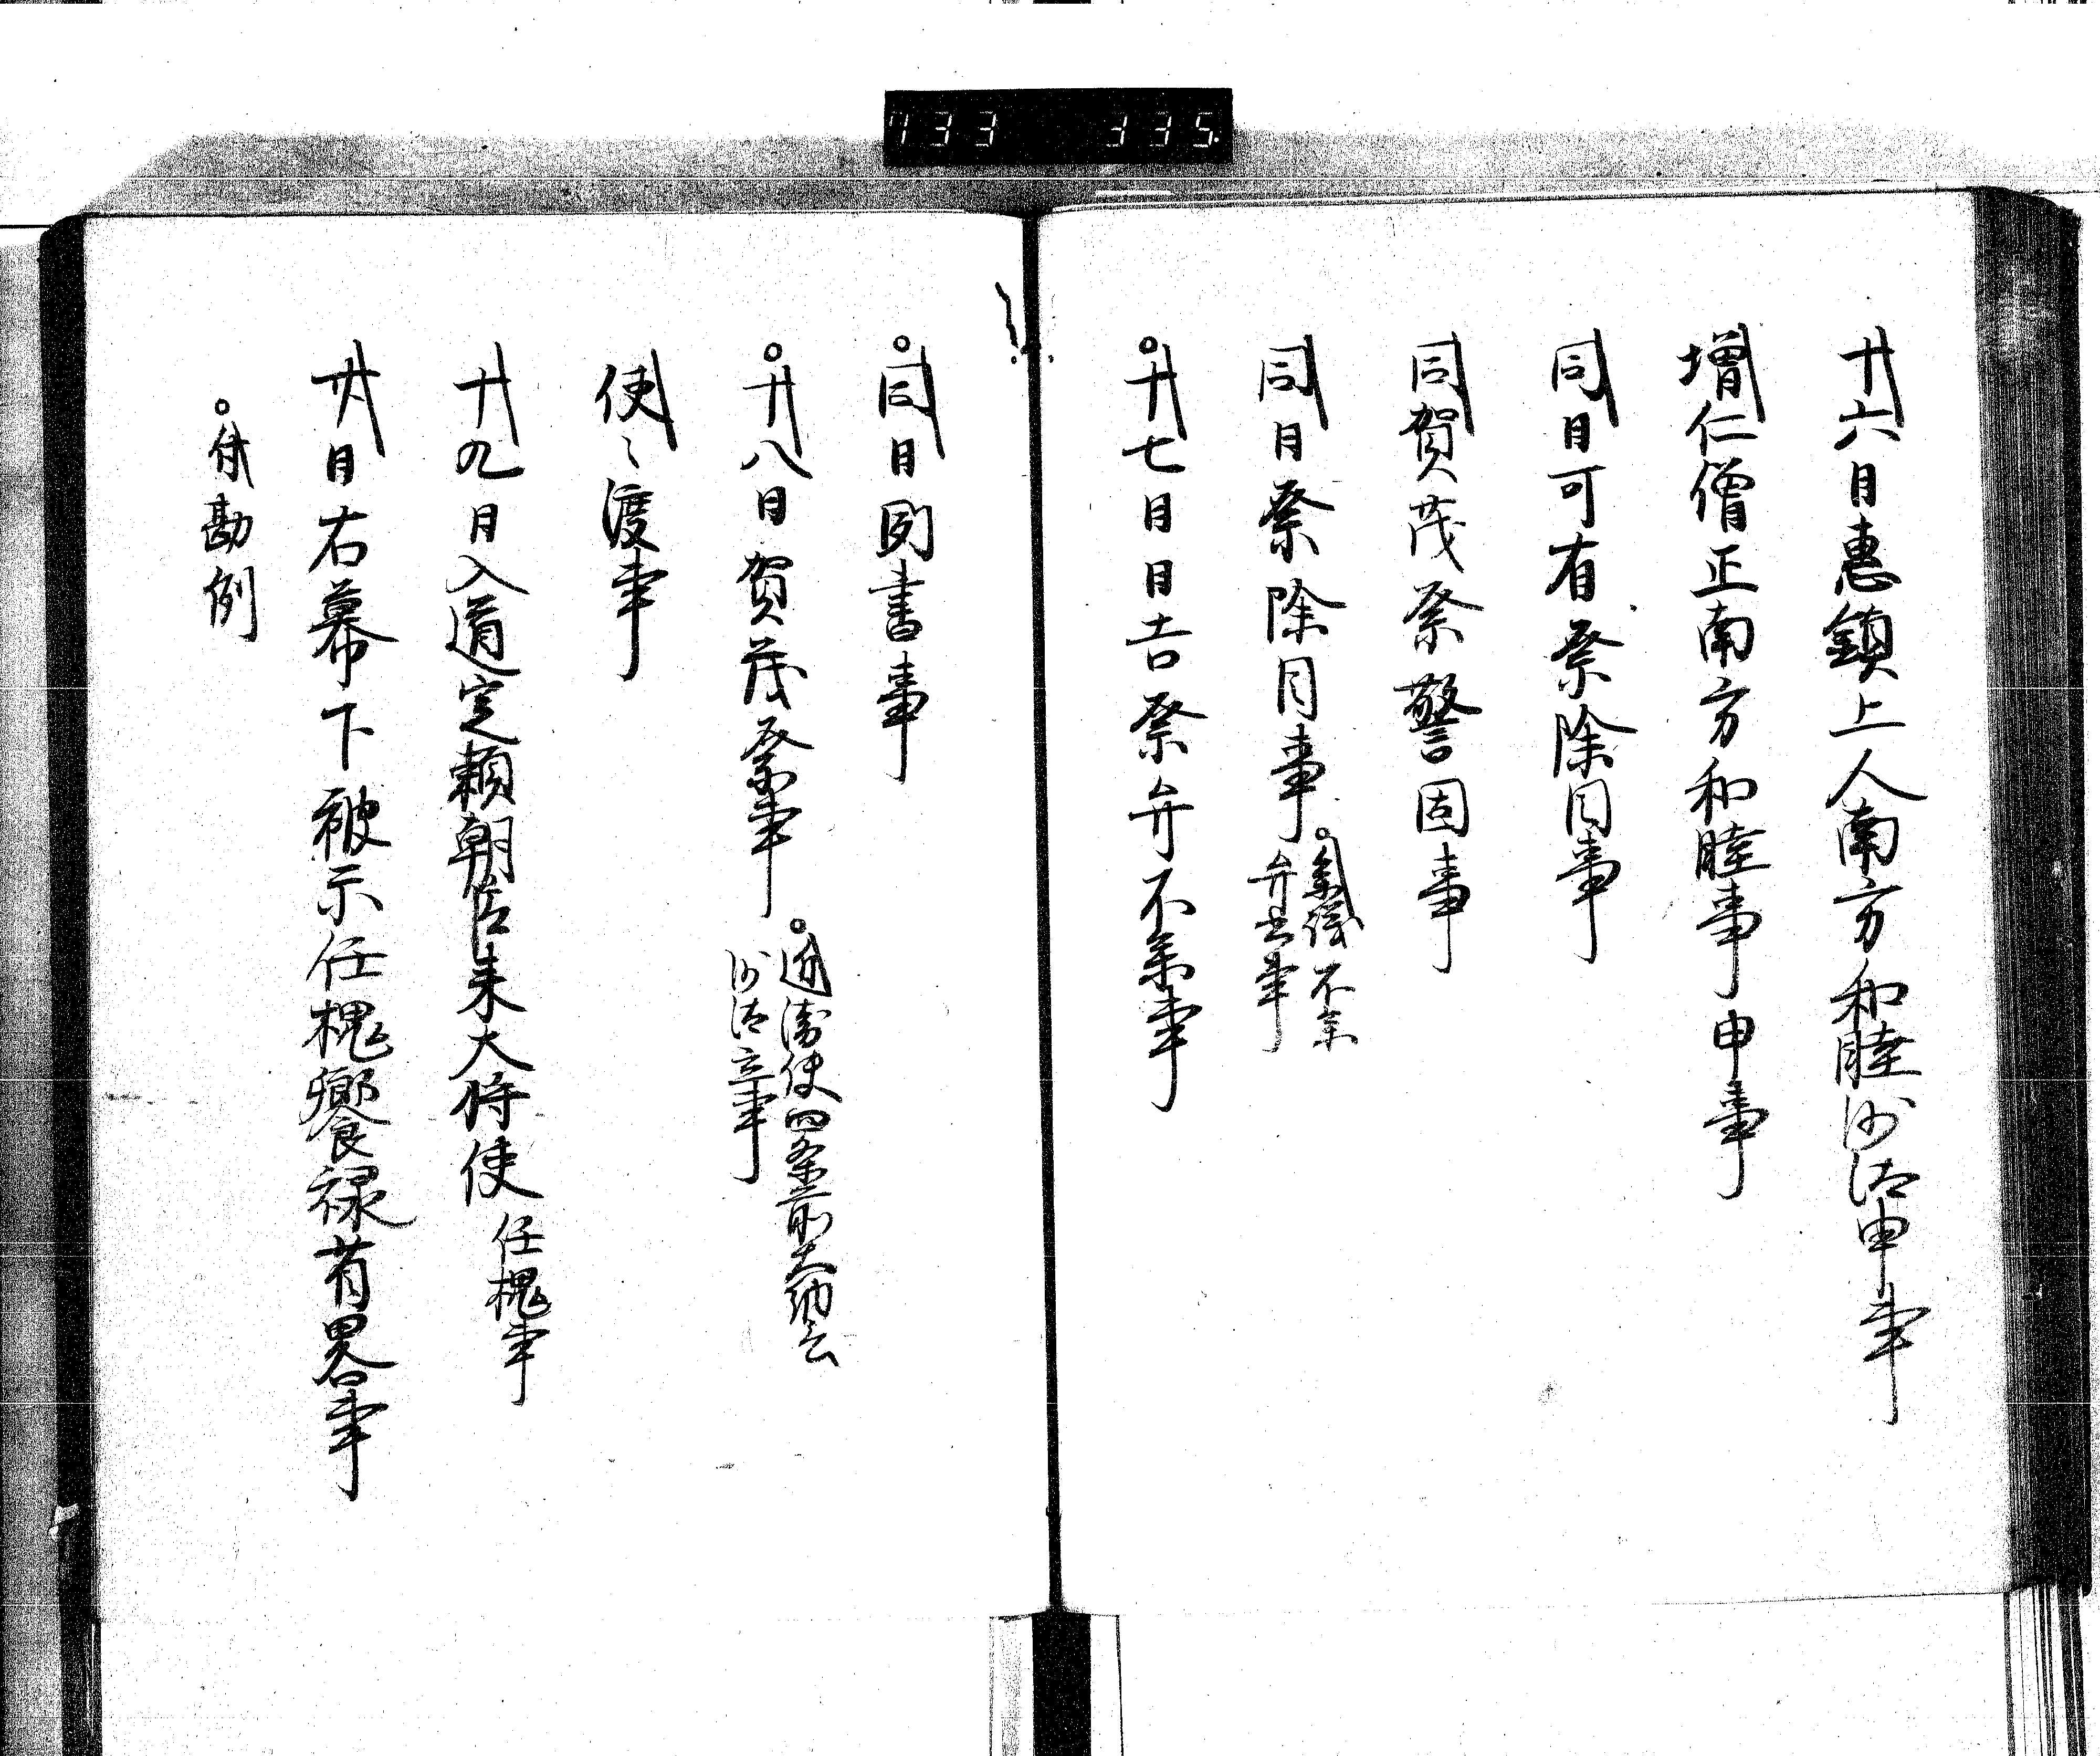 733 335
十六日惠鎮上人南方和睦沙汰申事
増仁僧正南方和睦事申事
同日可有祭除目事
同賀茂祭警固事
同日祭除目事
参議不参
弁書事
十七日日吉祭弁不参事
同日国書事
十八日賀茂祭事
近衛使四条前大納言
沙汰立事
使〻渡事
十九日入道定頼朝臣来大将使 任槐事
廿日右幕下被示任槐饗禄省略事
付勘例